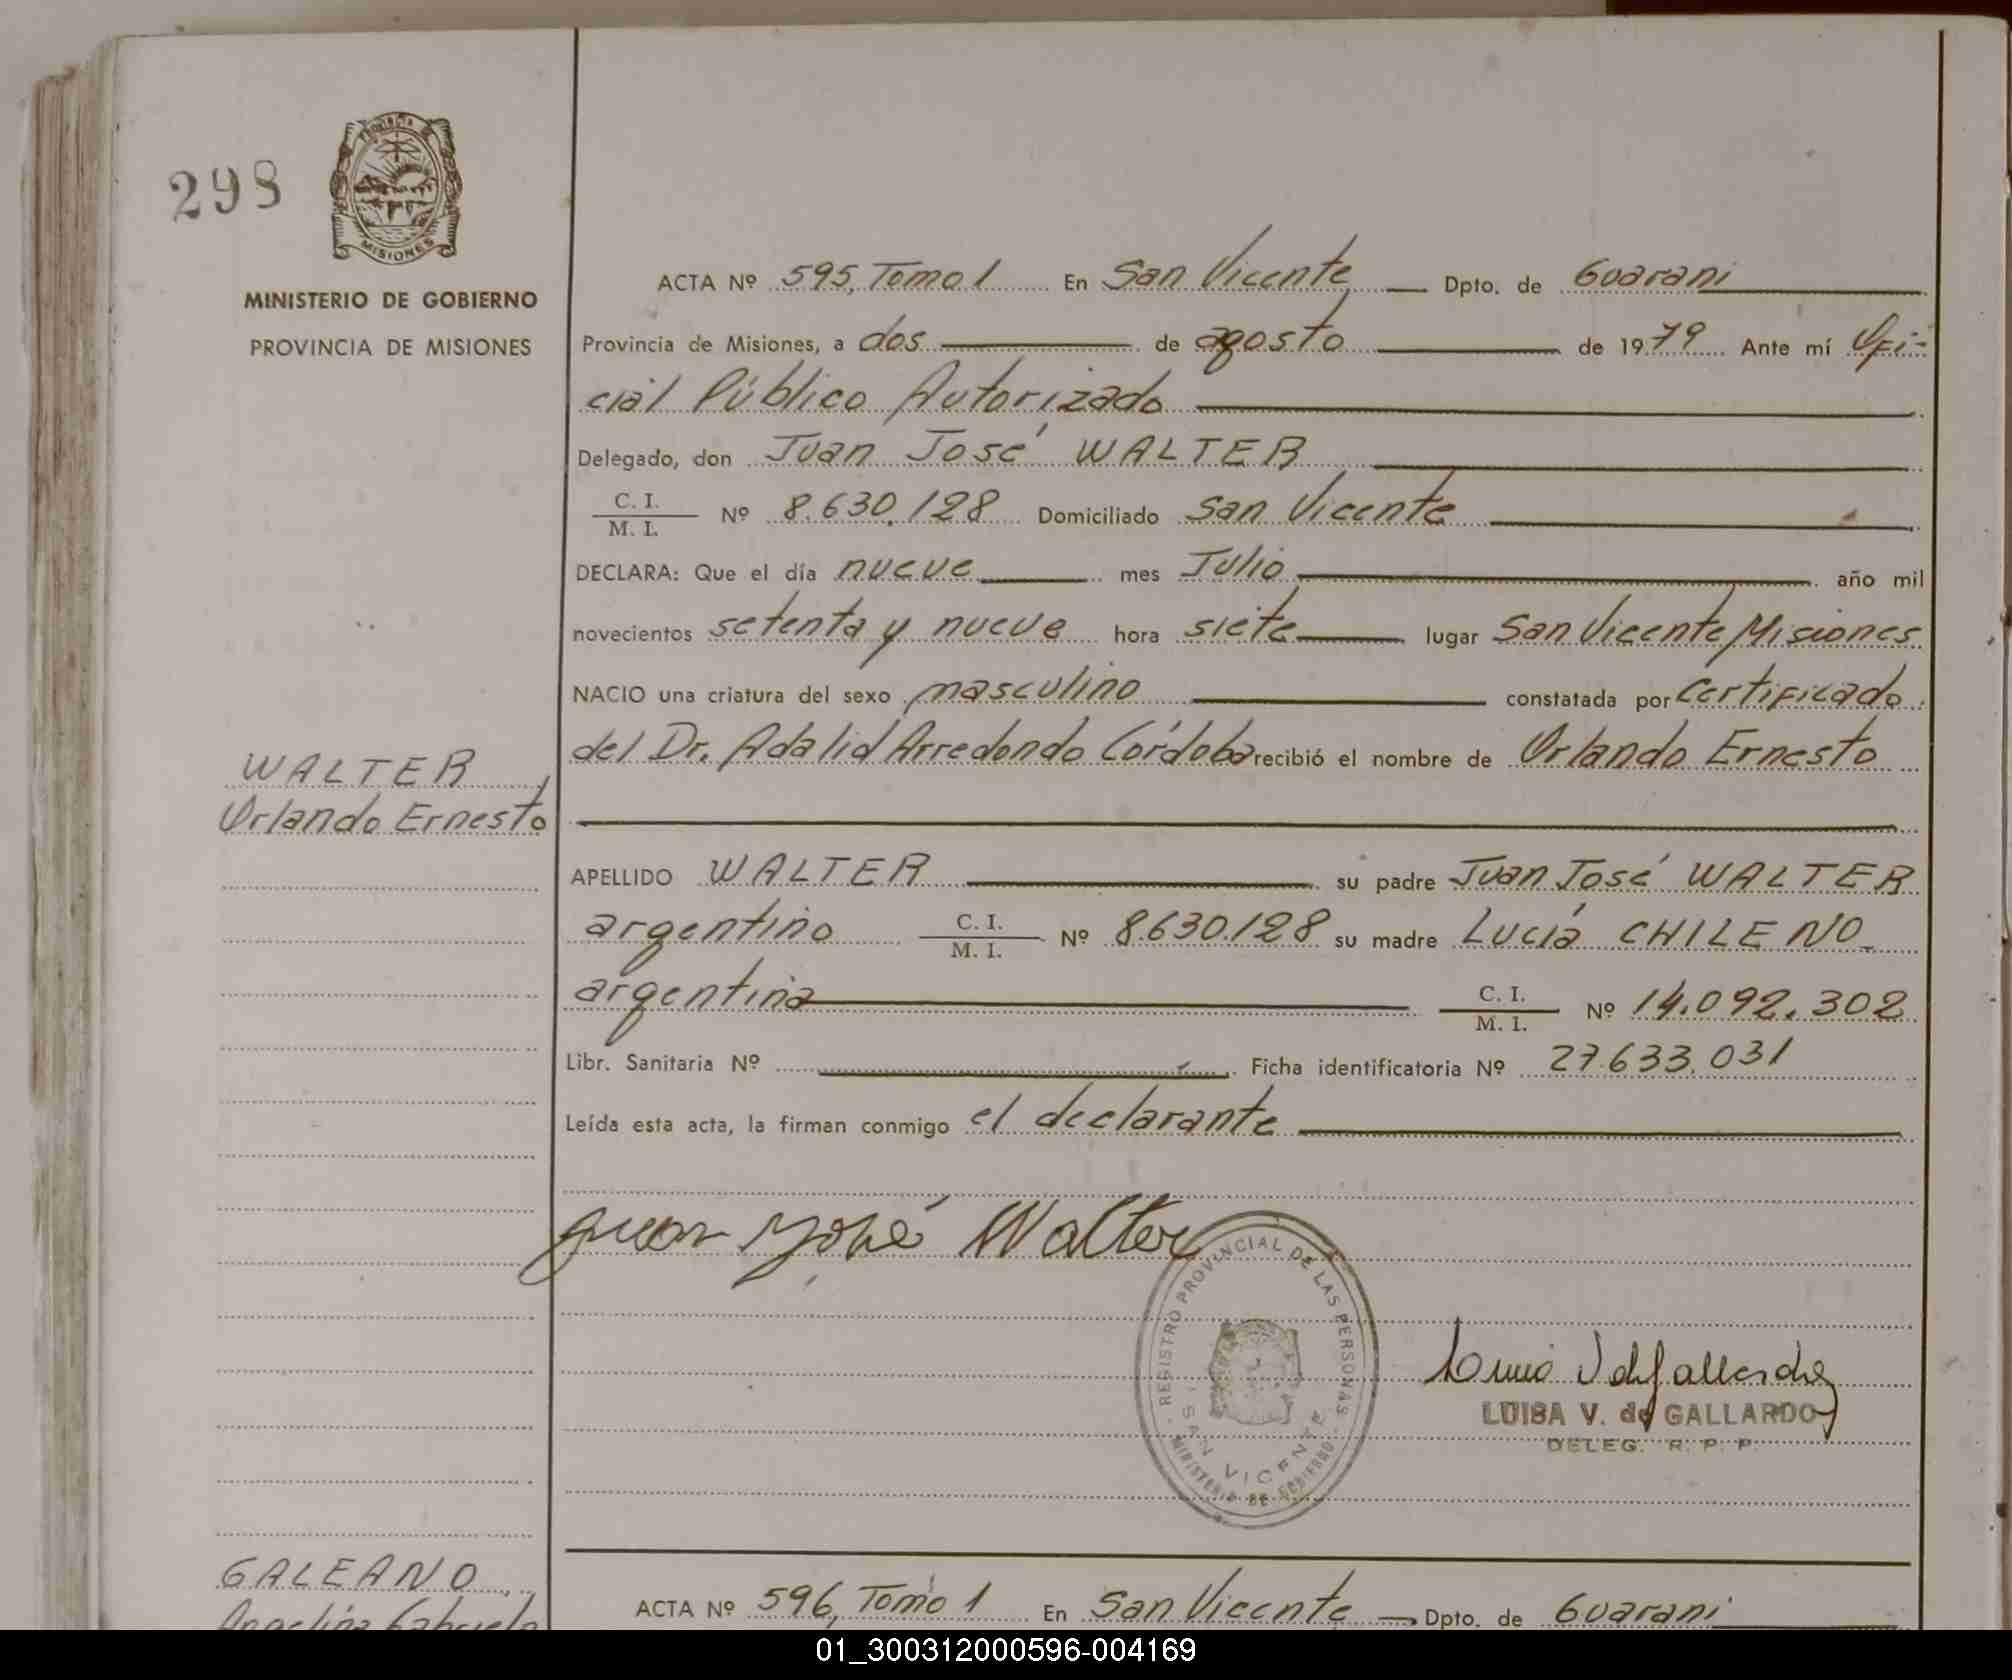 298
PROVINCIA DE
MISIONES
MINISTERIO DE GOBIERNO
PROVINCIA DE MISIONES
ACTA Nº 595, Tomo 1 En San Vicente Dpto. de Guarani
Provincia de Misiones, a dos de agosto de 1979 Ante mí Ofi-
cial Público Autorizado
Delegado, don Juan José WALTER
C. I.
M. I. Nº 8.630.128 Domiciliado San Vicente
DECLARA: Que el día nueve mes Julio año mil
novecientos setenta y nueve hora siete lugar San Vicente, Misiones
NACIO una criatura del sexo masculino constatada por Certificado
del Dr. Adalid Arredondo Córdoba recibió el nombre de Orlando Ernesto
WALTER,
Orlando Ernesto
APELLIDO WALTER su padre Juan José WALTER
argentino C. I.
M. I. Nº 8.630.128 su madre Lucía CHILENO
argentina C. I.
M. I. Nº 14.092.302
Libr. Sanitaria Nº Ficha identificatoria Nº 27.633.031
Leída esta acta, la firman conmigo el declarante
Juan José Walter
REGISTRO PROVINCIAL DE LAS PERSONAS
SAN VICENTE
MINISTERIO DE GOBIERNO
LUISA V. de GALLARDO
DELEG. R. P. P.
GALEANO
Angelina Gabriela
ACTA Nº 596, Tomo 1 En San Vicente Dpto. de Guarani
01_300312000596-004169